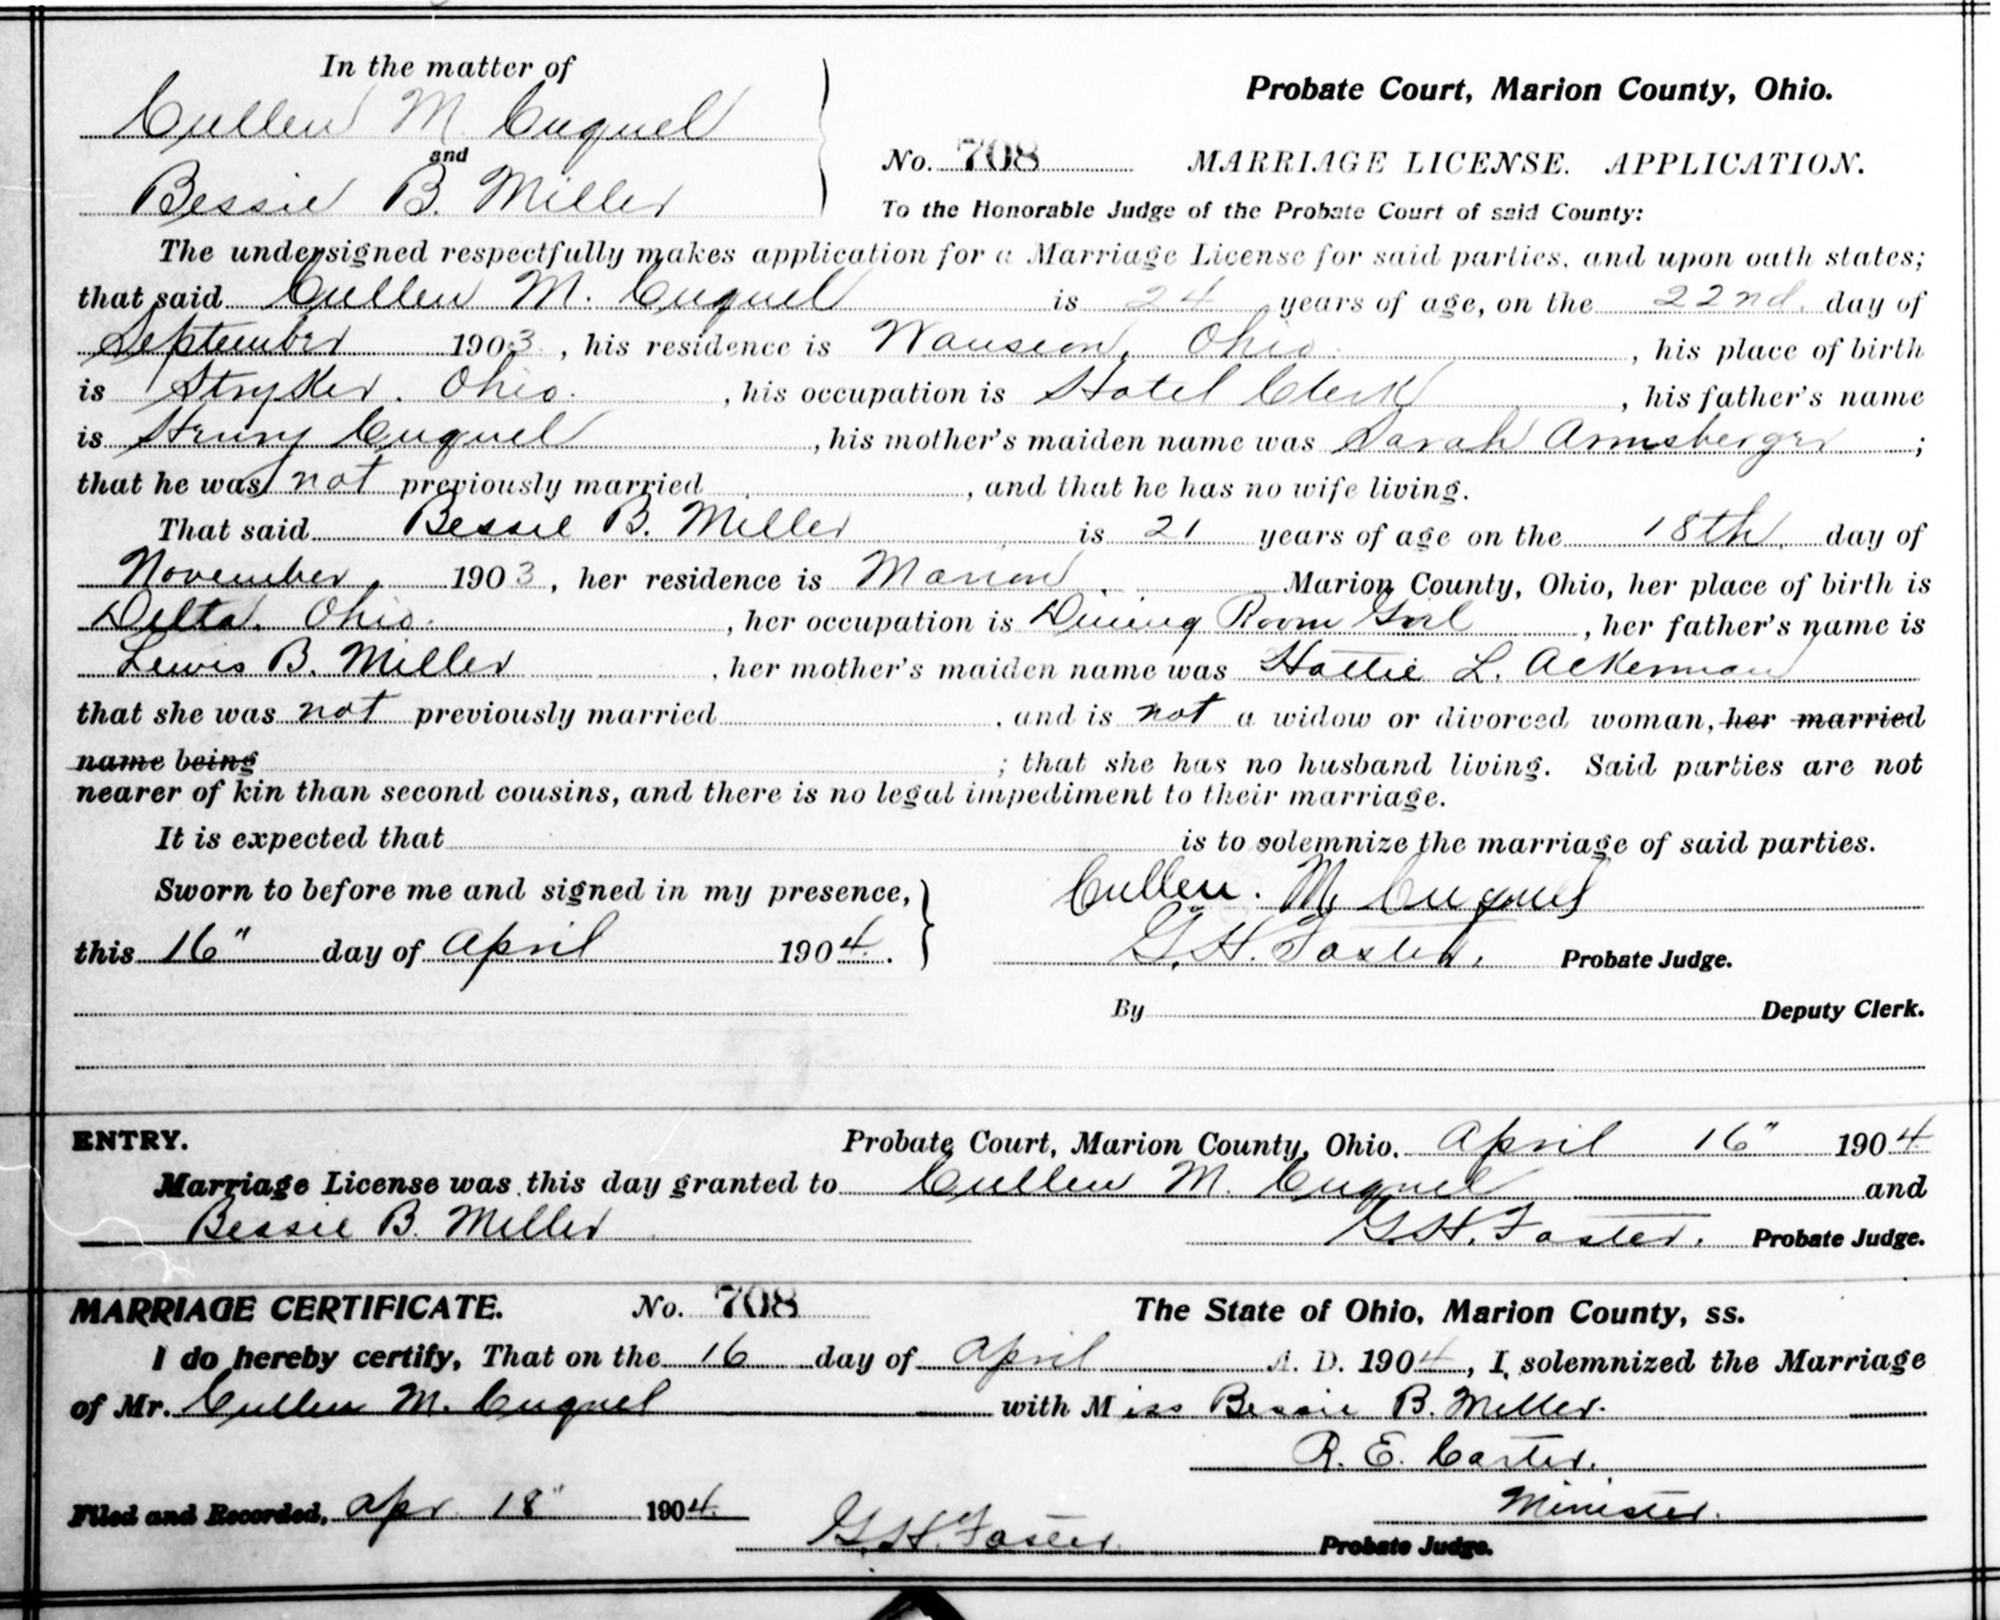 In the matter of
Cullen M. Cuquel
and
Bessie B. Miller
Probate Court, Marion County, Ohio.
No. 708 MARRIAGE LICENSE. APPLICATION.
To the Honorable Judge of the Probate Court of said County:
The undersigned respectfully makes application for a Marriage License for said parties, and upon oath states;
that said Cullen M. Cuquel is 24 years of age, on the 22nd. day of
September 1903, his residence is Wauseon, Ohio. , his place of birth
is Stryker. Ohio. , his occupation is Hotel Clerk , his father's name
is Henry Cuquel , his mother's maiden name was Sarah Armsberger ;
that he was not previously married , and that he has no wife living.
That said Bessie B. Miller is 21 years of age on the 18th. day of
November, 1903, her residence is Marion Marion County, Ohio, her place of birth is
Delta. Ohio. , her occupation is Dining Room Girl , her father's name is
Lewis B. Miller , her mother's maiden name was Hattie L. Ackerman
that she was not previously married , and is not a widow or divorced woman, her married
name being ; that she has no husband living. Said parties are not
nearer of kin than second cousins, and there is no legal impediment to their marriage.
It is expected that is to solemnize the marriage of said parties.
Sworn to before me and signed in my presence,
this 16" day of April 1904.
Cullen. M. Cuquel
G. H. Foster. Probate Judge.
By Deputy Clerk.
ENTRY. Probate Court, Marion County, Ohio. April 16" 1904
Marriage License was this day granted to Cullen M. Cuquel and
Bessie B. Miller G. H. Foster. Probate Judge.
MARRIAGE CERTIFICATE. No. 708 The State of Ohio, Marion County, ss.
I do hereby certify, That on the 16 day of April A. D. 1904, I solemnized the Marriage
of Mr. Cullen M. Cuquel with Miss Bessie B. Miller.
R. E. Carter.
Minister.
Filed and Recorded, Apr. 18" 1904.
G. H. Foster Probate Judge.